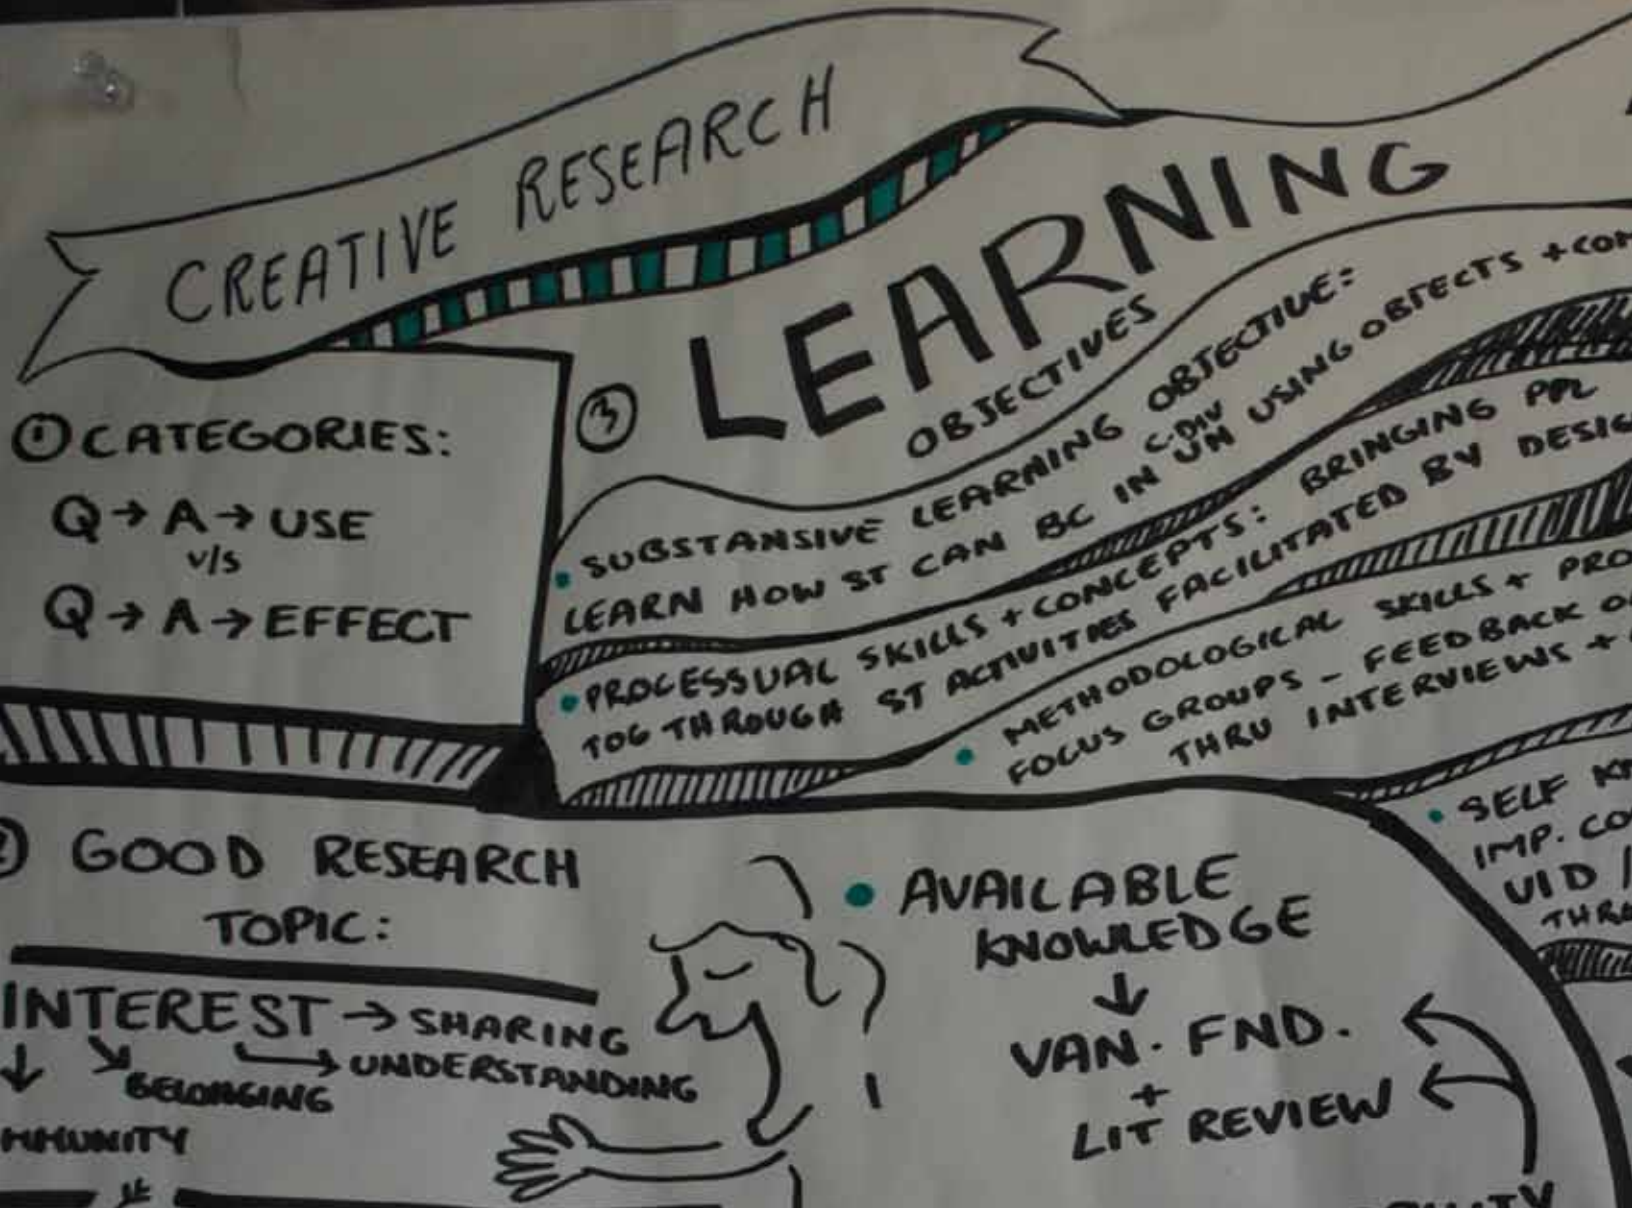 CREATIVE RESEARCH
① CATEGORIES:
Q → A → USE
V/S
Q → A → EFFECT
③ LEARNING
OBJECTIVES
• SUBSTANSIVE LEARNING OBJECTIVE:
C-DIV
LEARN HOW ST CAN BC IN JM USING OBJECTS +
• PROCESSUAL SKILLS + CONCEPTS: BRINGING PPL
TOG THROUGH ST ACTIVITIES FACILITATED BY
• METHODOLOGICAL SKILLS +
FOCUS GROUPS - FEEDBACK
THRU INTERVIEWS +
• SELF
IMP.
UID /
GOOD RESEARCH
TOPIC:
INTEREST → SHARING
→ UNDERSTANDING
BELONGING
• AVAILABLE
KNOWLEDGE
↓
VAN. FND.
+
LIT REVIEW